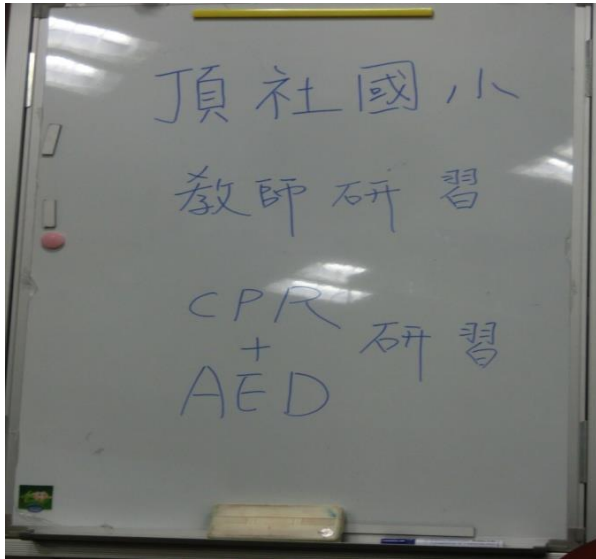 頂社國小
教師研習
CPR
+
AED
研習